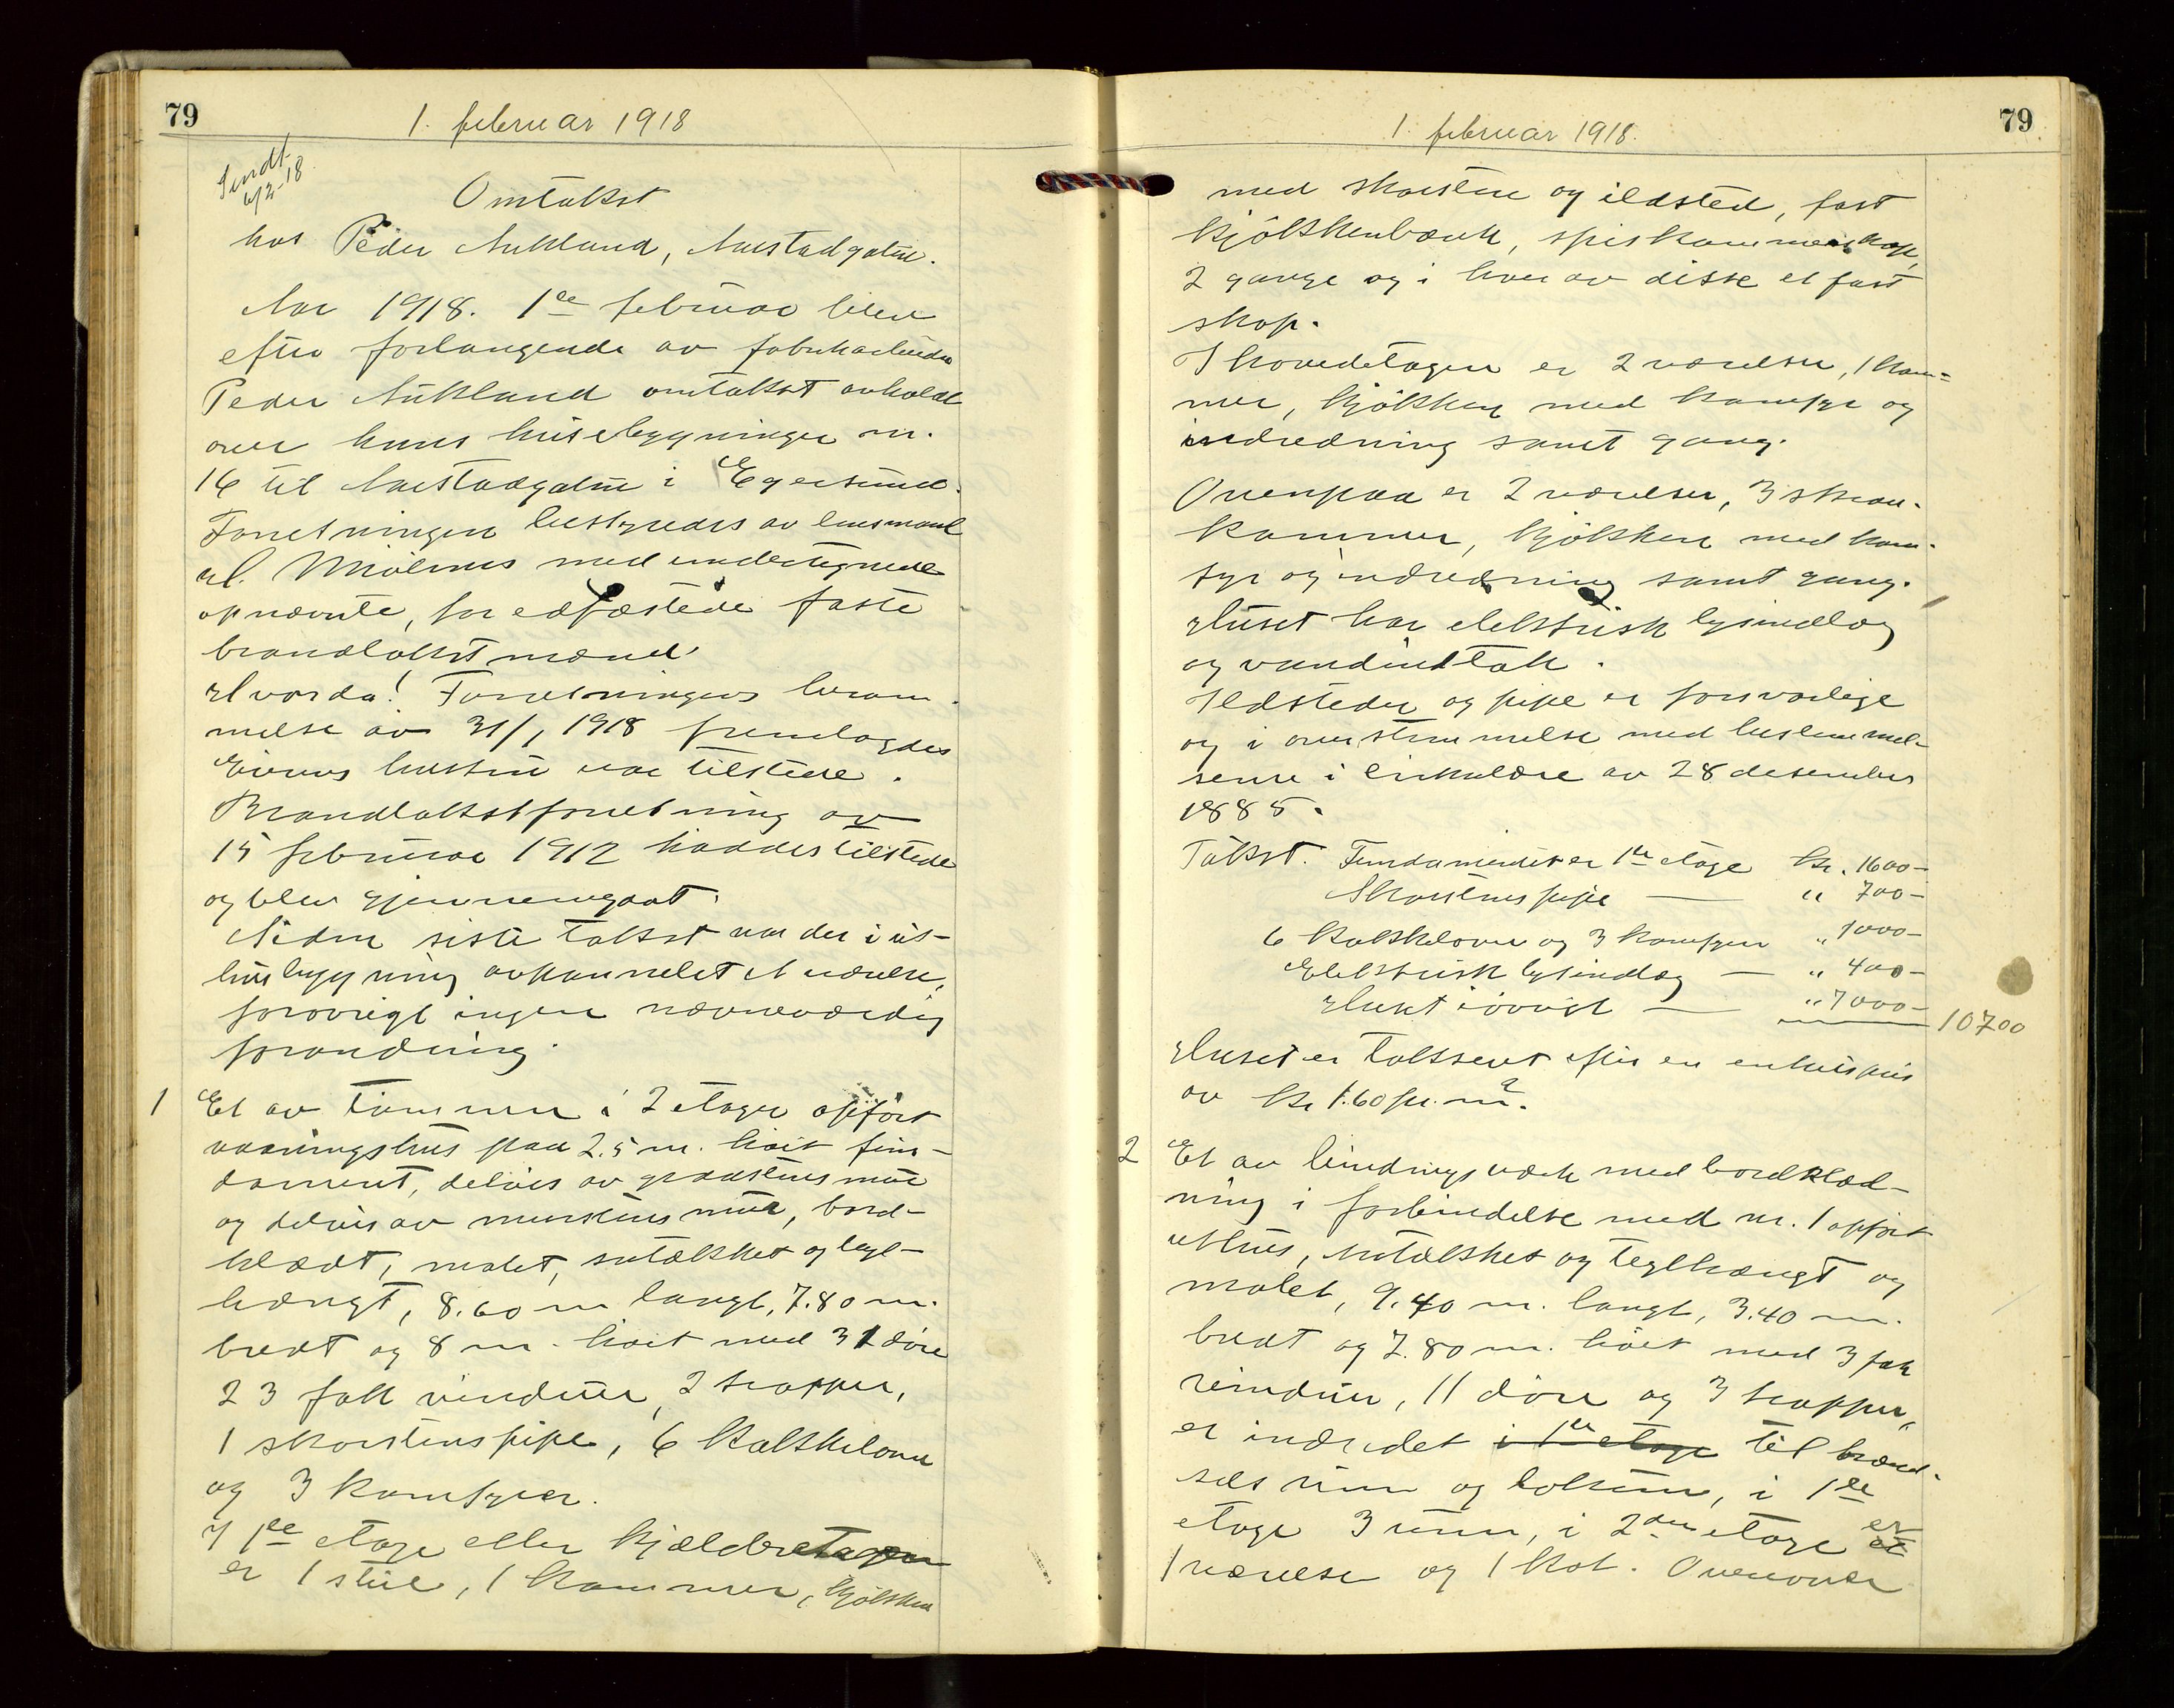 79
1. februar 1918
Sendt
6/2-18
Omtakst
hos Peder Aukland, Aarstadgaten.
Aar 1918. 1ste februar blev
efter forlangende av fabrikarbeider
Peder Aukland omtakst avholdt
over hans husebygninger nr.
16 til Aarstadgaten i Egersund.
Forretningen bestyredes av lensmand
H. Mjølhus med undertegnede
opnævnte, før edfæstede faste
brandtakstmænd.
Hvorda! Forretningens beram-
melse av 31/1 1918 fremlagdes
Eierens hustru var tilstede.
Brandtakstforretning av
15 februar 1912 haddes tilstede
og blev gjennemgaat.
Siden siste takst var der i ut-
husbygning avpannelet et værelse,
forøvrigt ingen nævneværdig
forandring.
1 Et av tømmer i 2 etager opført
vaaningshus paa 2.5 m. høit fun-
dament, delvis av graastensmur
og delvis av murstensmur, bord-
klædt, malet, sutaksket og tegl-
hængt, 8.60 m langt, 7.80 m.
bredt og 8 m. høit med 31 døre
23 fak vinduer, 2 trapper,
1 skorstenspipe, 6 kakkelovne
og 3 komfyrer.
I 1ste etage eller kjælderetagen
er 1 stue, 1 kammer, kjøkken
79
1. februar 1918.
med skorsten og ildsted, fast
kjøkkenbænk, spiskammerskap,
2 gange og i hver av disse et fast
skap.
I hovedetagen er 2 værelser, 1 kam-
mer, kjøkken med komfyr og
indredning samt gang.
Ovenpaa er 2 værelser, 3 skraa-
kammer, kjøkken med kom-
fyr og indredning samt gang.
Huset har elektrisk lysindlæg
og vandindtak.
Ildsteder og pipe er forsvarlige
og i overstemmelse med bestemmel-
serne i cirkulære av 28 desember
1885.
Takst. Fundamentet er 1ste etage kr. 1600-
Skorstenspipe — " 700-
6 kakkelovne og 3 komfyrer " 1000-
Elektrisk lysindlæg — " 400-
Huset iøvrigt — " 7000-
10700
Huset er takseret efter en enhetspris
av kr 160 pr. m2.
2 Et av bindingsverk med bordklæd-
ning i forbindelse med nr. 1 opført
uthus, sutaksket og teglhængt og
malet, 9.40 m. langt, 3.40 m.
bredt og 7.80 m. høit med 3 fak
vinduer, 11 døre og 3 trapper,
er indredet i 1ste etage til brænd-
selsrum og lokum, i 1ste
etage 3 rum, i 2den etage er et
1 værelse og 1 kot. Ovenover